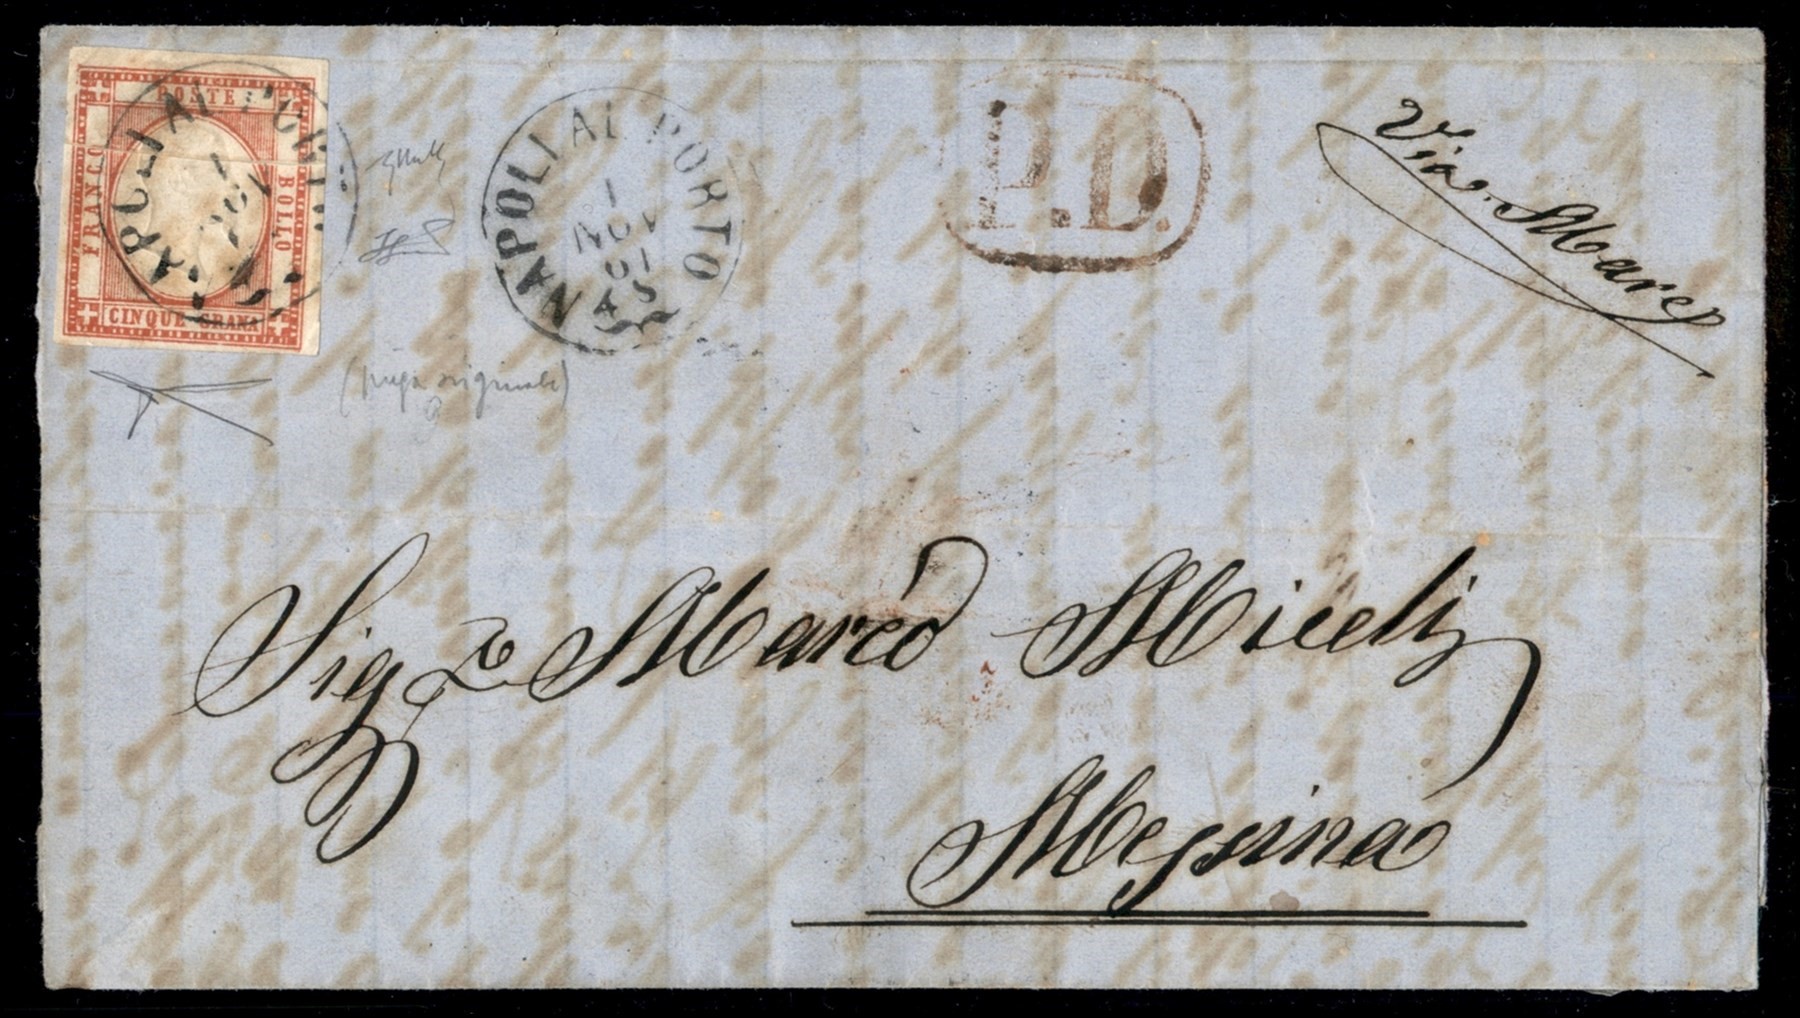 POSTE
FRANCO
BOLLO
CINQUE GRANA
NAPOLI AL PORTO
1
NOV
61
4 S
NAPOLI AL PORTO
1
NOV
61
P.D.
Via Mare
(piega originale)
Sig.r Marco Miceli
Messina